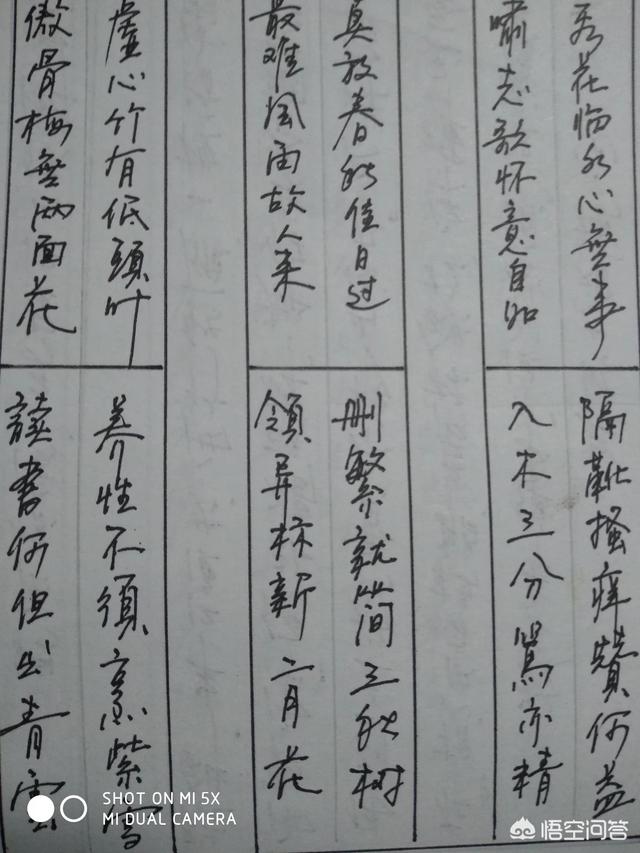 看花临水心無事
嘯志歌怀意自如
莫放春秋佳日过
最难风雨故人来
虚心竹有低頭叶
傲骨梅無两面花
隔靴搔痒賛何益
入木三分罵亦精
删繁就简三秋树
領异标新二月花
养性不須烹紫
讀書何但出青雲
SHOT ON MI 5X
MI DUAL CAMERA
悟空问答